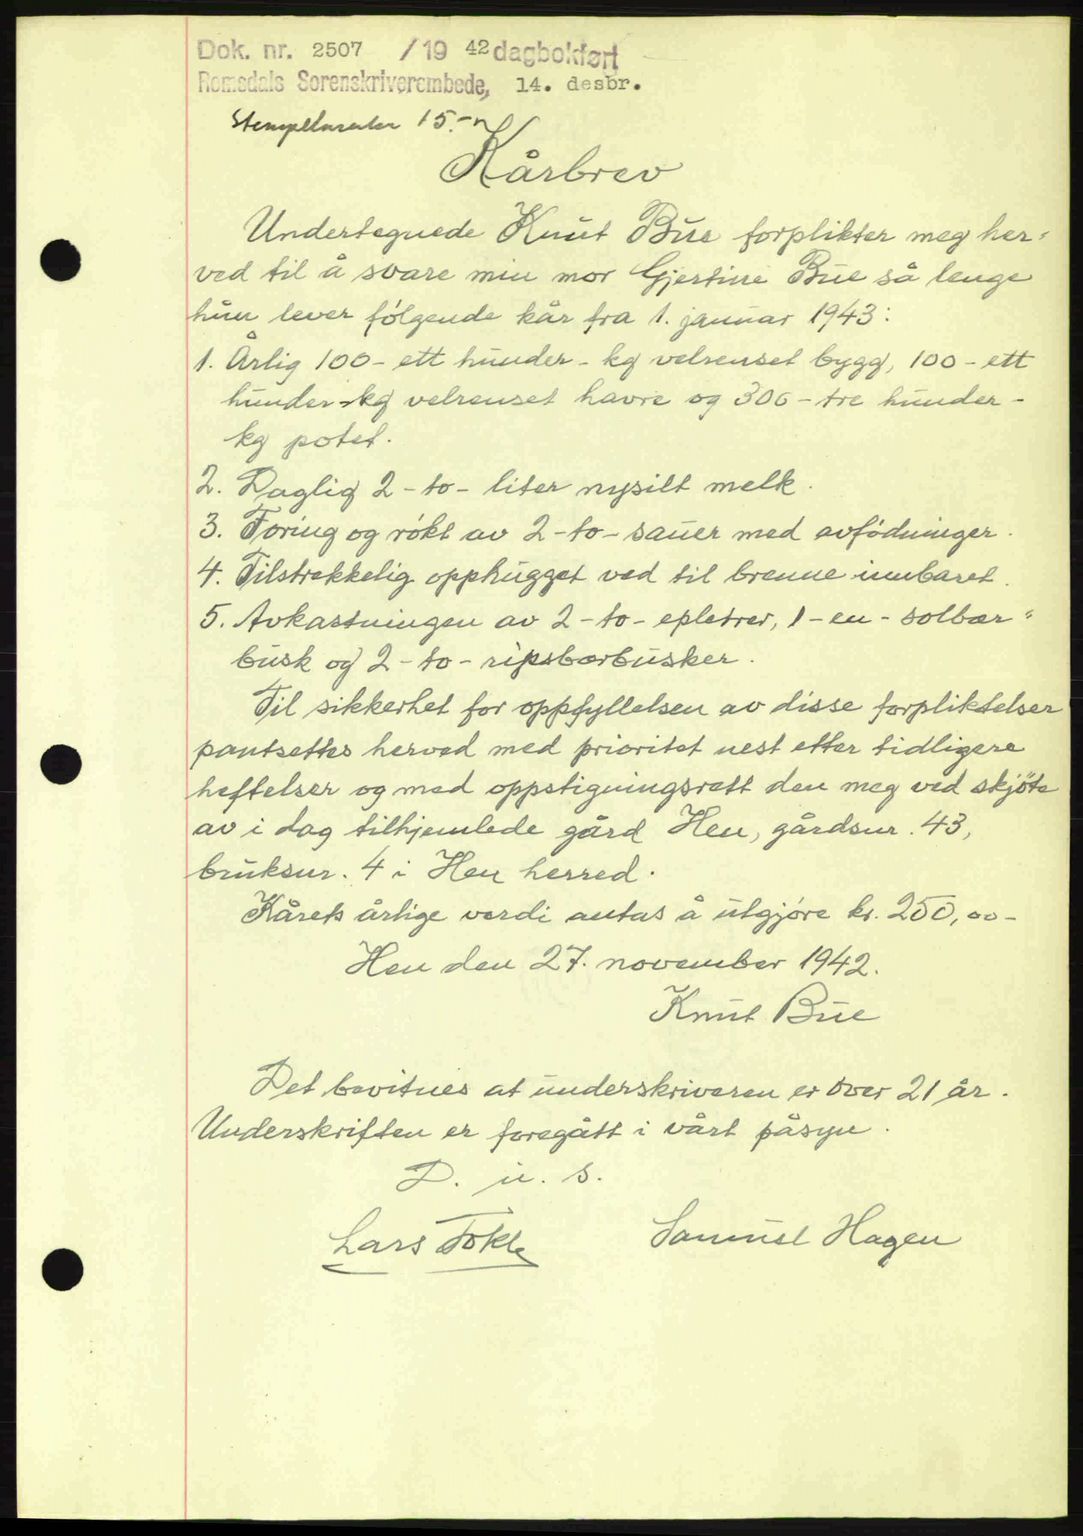 Dok. nr. 2507 /19 42 dagbokført
Romsdals Sorenskriverembede, 14. desbr.
Stempelmerker 15.-
Kårbrev
Undertegnede Knut Bue forplikter meg her-
ved til å svare min mor Gjertine Bue så lenge
hun lever følgende kår fra 1. januar 1943:
1. Årlig 100 - ett hunder - kg velrenset bygg, 100 - ett
hunder - kg velrenset havre og 300 - tre hunder -
kg potet.
2. Daglig 2 - to - liter nysilt melk.
3. Foring og røkt av 2 - to - sauer med avfødninger.
4. Tilstrekkelig opphugget ved til brenne innbaret.
5. Avkastningen av 2 - to - epletrer, 1 - en - solbær-
busk og 2 - to - ripsbærbusker.
Til sikkerhet for oppfyllelsen av disse forpliktelser
pantsettes herved med prioritet nest etter tidligere
heftelser og med oppstigningsrett den meg ved skjöte
av i dag tilhjemlede gård Hen, gårdsnr. 43,
bruksnr. 4 i Hen herred.
Kårets årlige verdi antas å utgjøre kr. 250,00-
Hen den 27. november 1942.
Knut Bue
Det bevitnes at underskriveren er over 21 år.
Underskriften er foregått i vårt påsyn.
D. u. s.
Lars Tokle Samuel Hagen